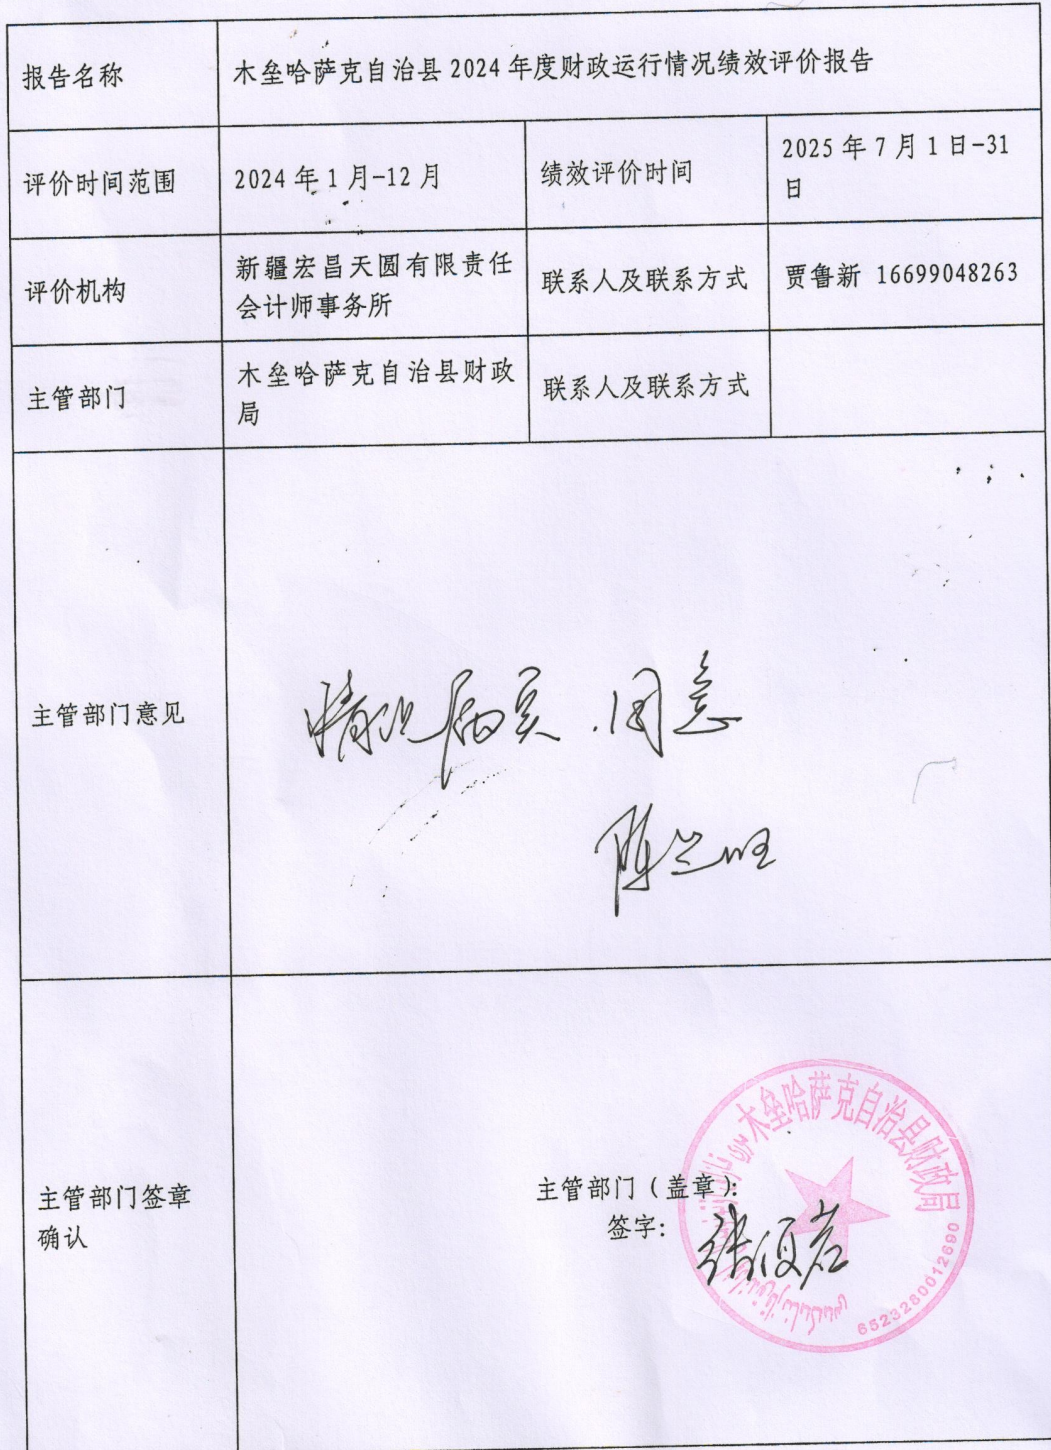 报告名称
木垒哈萨克自治县2024年度财政运行情况绩效评价报告
评价时间范围
2024年1月-12月
绩效评价时间
2025年7月1日-31
日
评价机构
新疆宏昌天圆有限责任
会计师事务所
联系人及联系方式
贾鲁新 16699048263
主管部门
木垒哈萨克自治县财政
局
联系人及联系方式
主管部门意见
情况属实.同意
主管部门签章
确认
主管部门(盖章):
签字:
木垒哈萨克自治县财政局
6523280012690